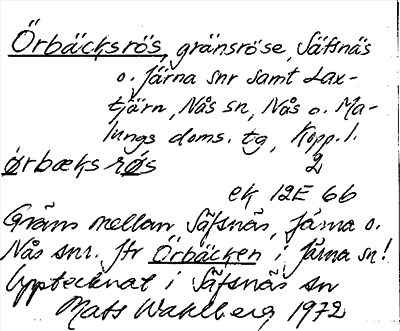 Örbäcksrös, gränsröse, Säfsnäs
o. Järna snr samt Lax-
tjärn, Nås sn, Nås o. Ma-
lungs doms. tg, Kopp. l.
ørbæks røs 2
ek 12E 6b
Gräns mellan Säfsnäs, Järna o.
Nås snr. Jfr Örbäcken i Järna sn!
Upptecknat i Säfsnäs sn
Mats Wahlberg 1972